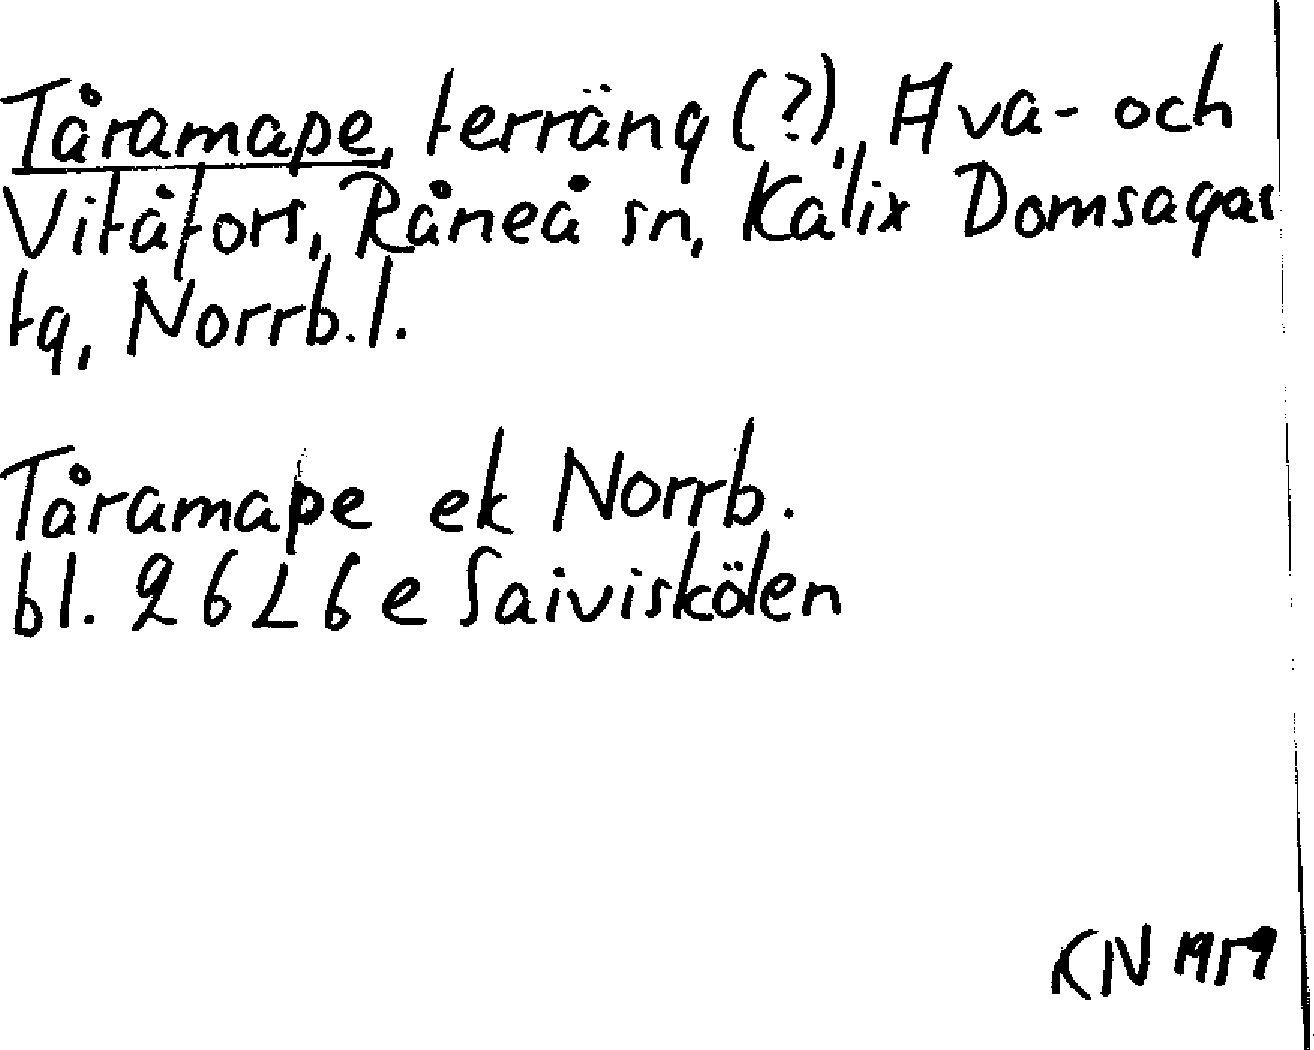 Tåramape, terräng (?), Ava- och
Vitåfors, Råneå sn, Kalix Domsagas
tg, Norrb.l.
Tåramape ek Norrb.
bl. 26L6e Saiviskölen
KN 1959